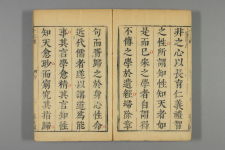 非之心以長育仁義禮智
之性所謂知性知天者如
是而已来之學者自謂得
不傳之學於遺經掃除章
句而嘗歸之於身心性命
近代儒者遂以講道爲能
事其言學愈精其言知性
知天愈眇而窮究其指歸